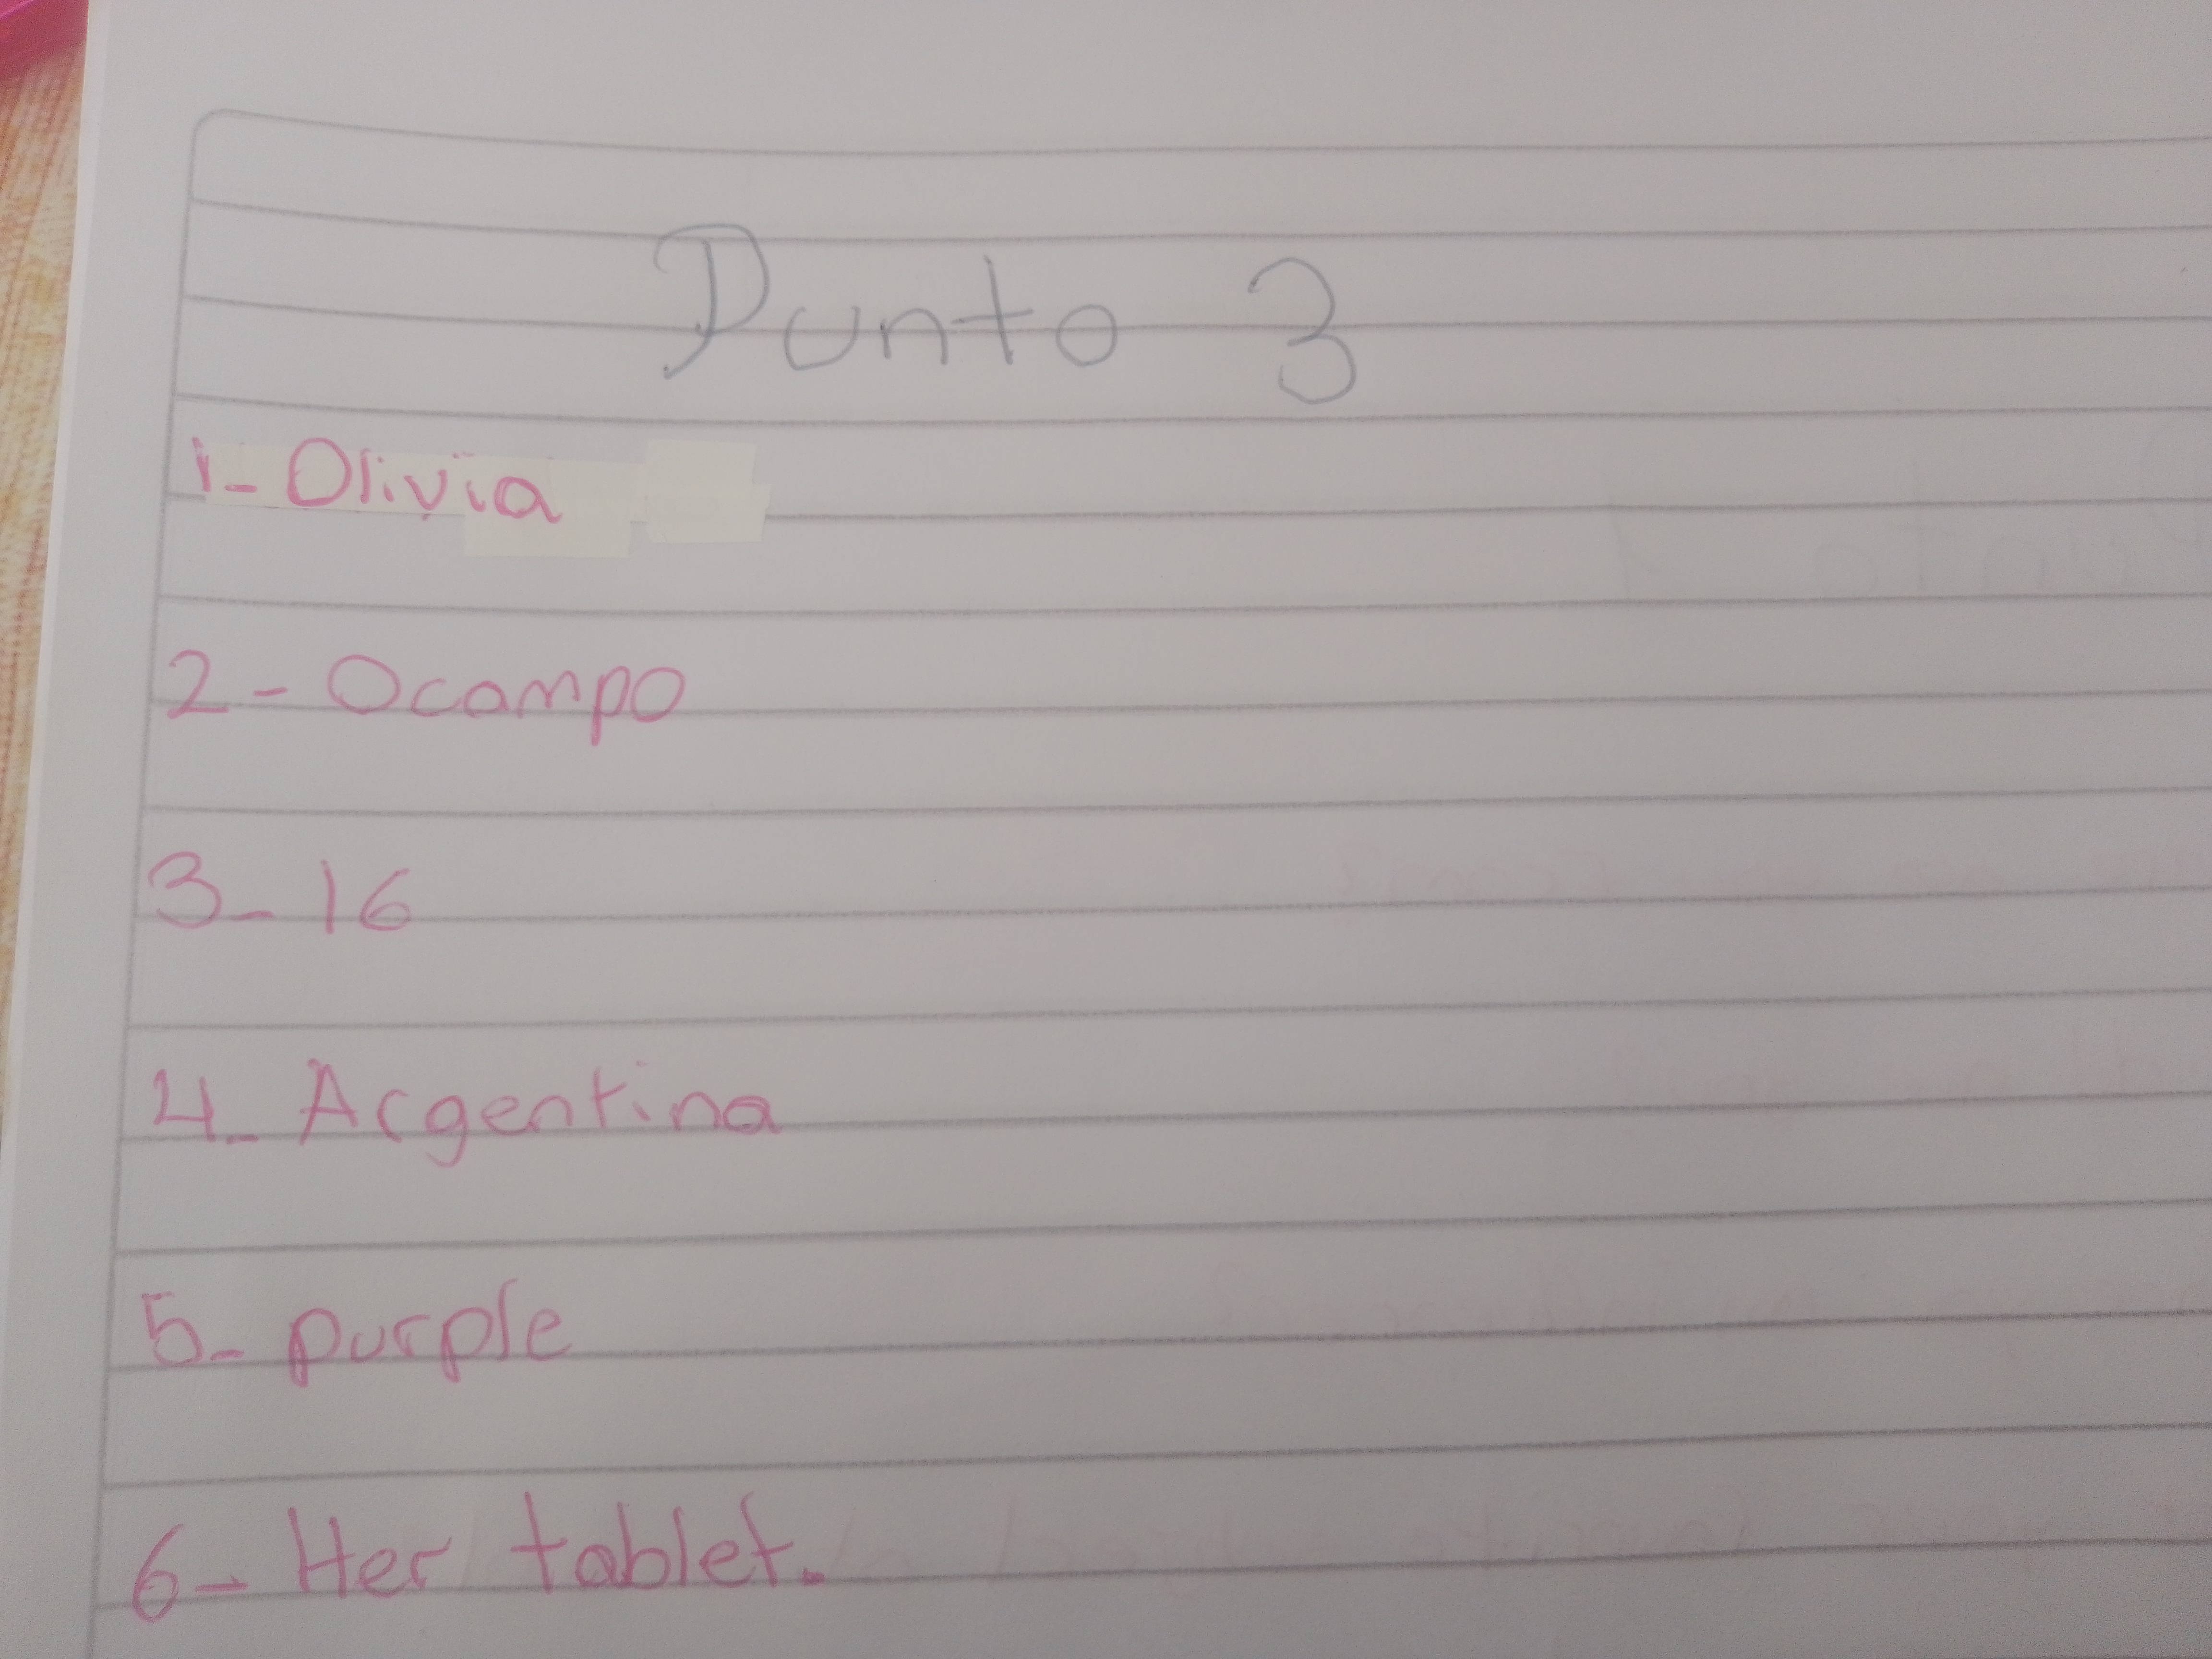 Punto 3
1- Olivia
2- Ocampo
3- 16
4- Argentina
5- purple
6- Her tablet.